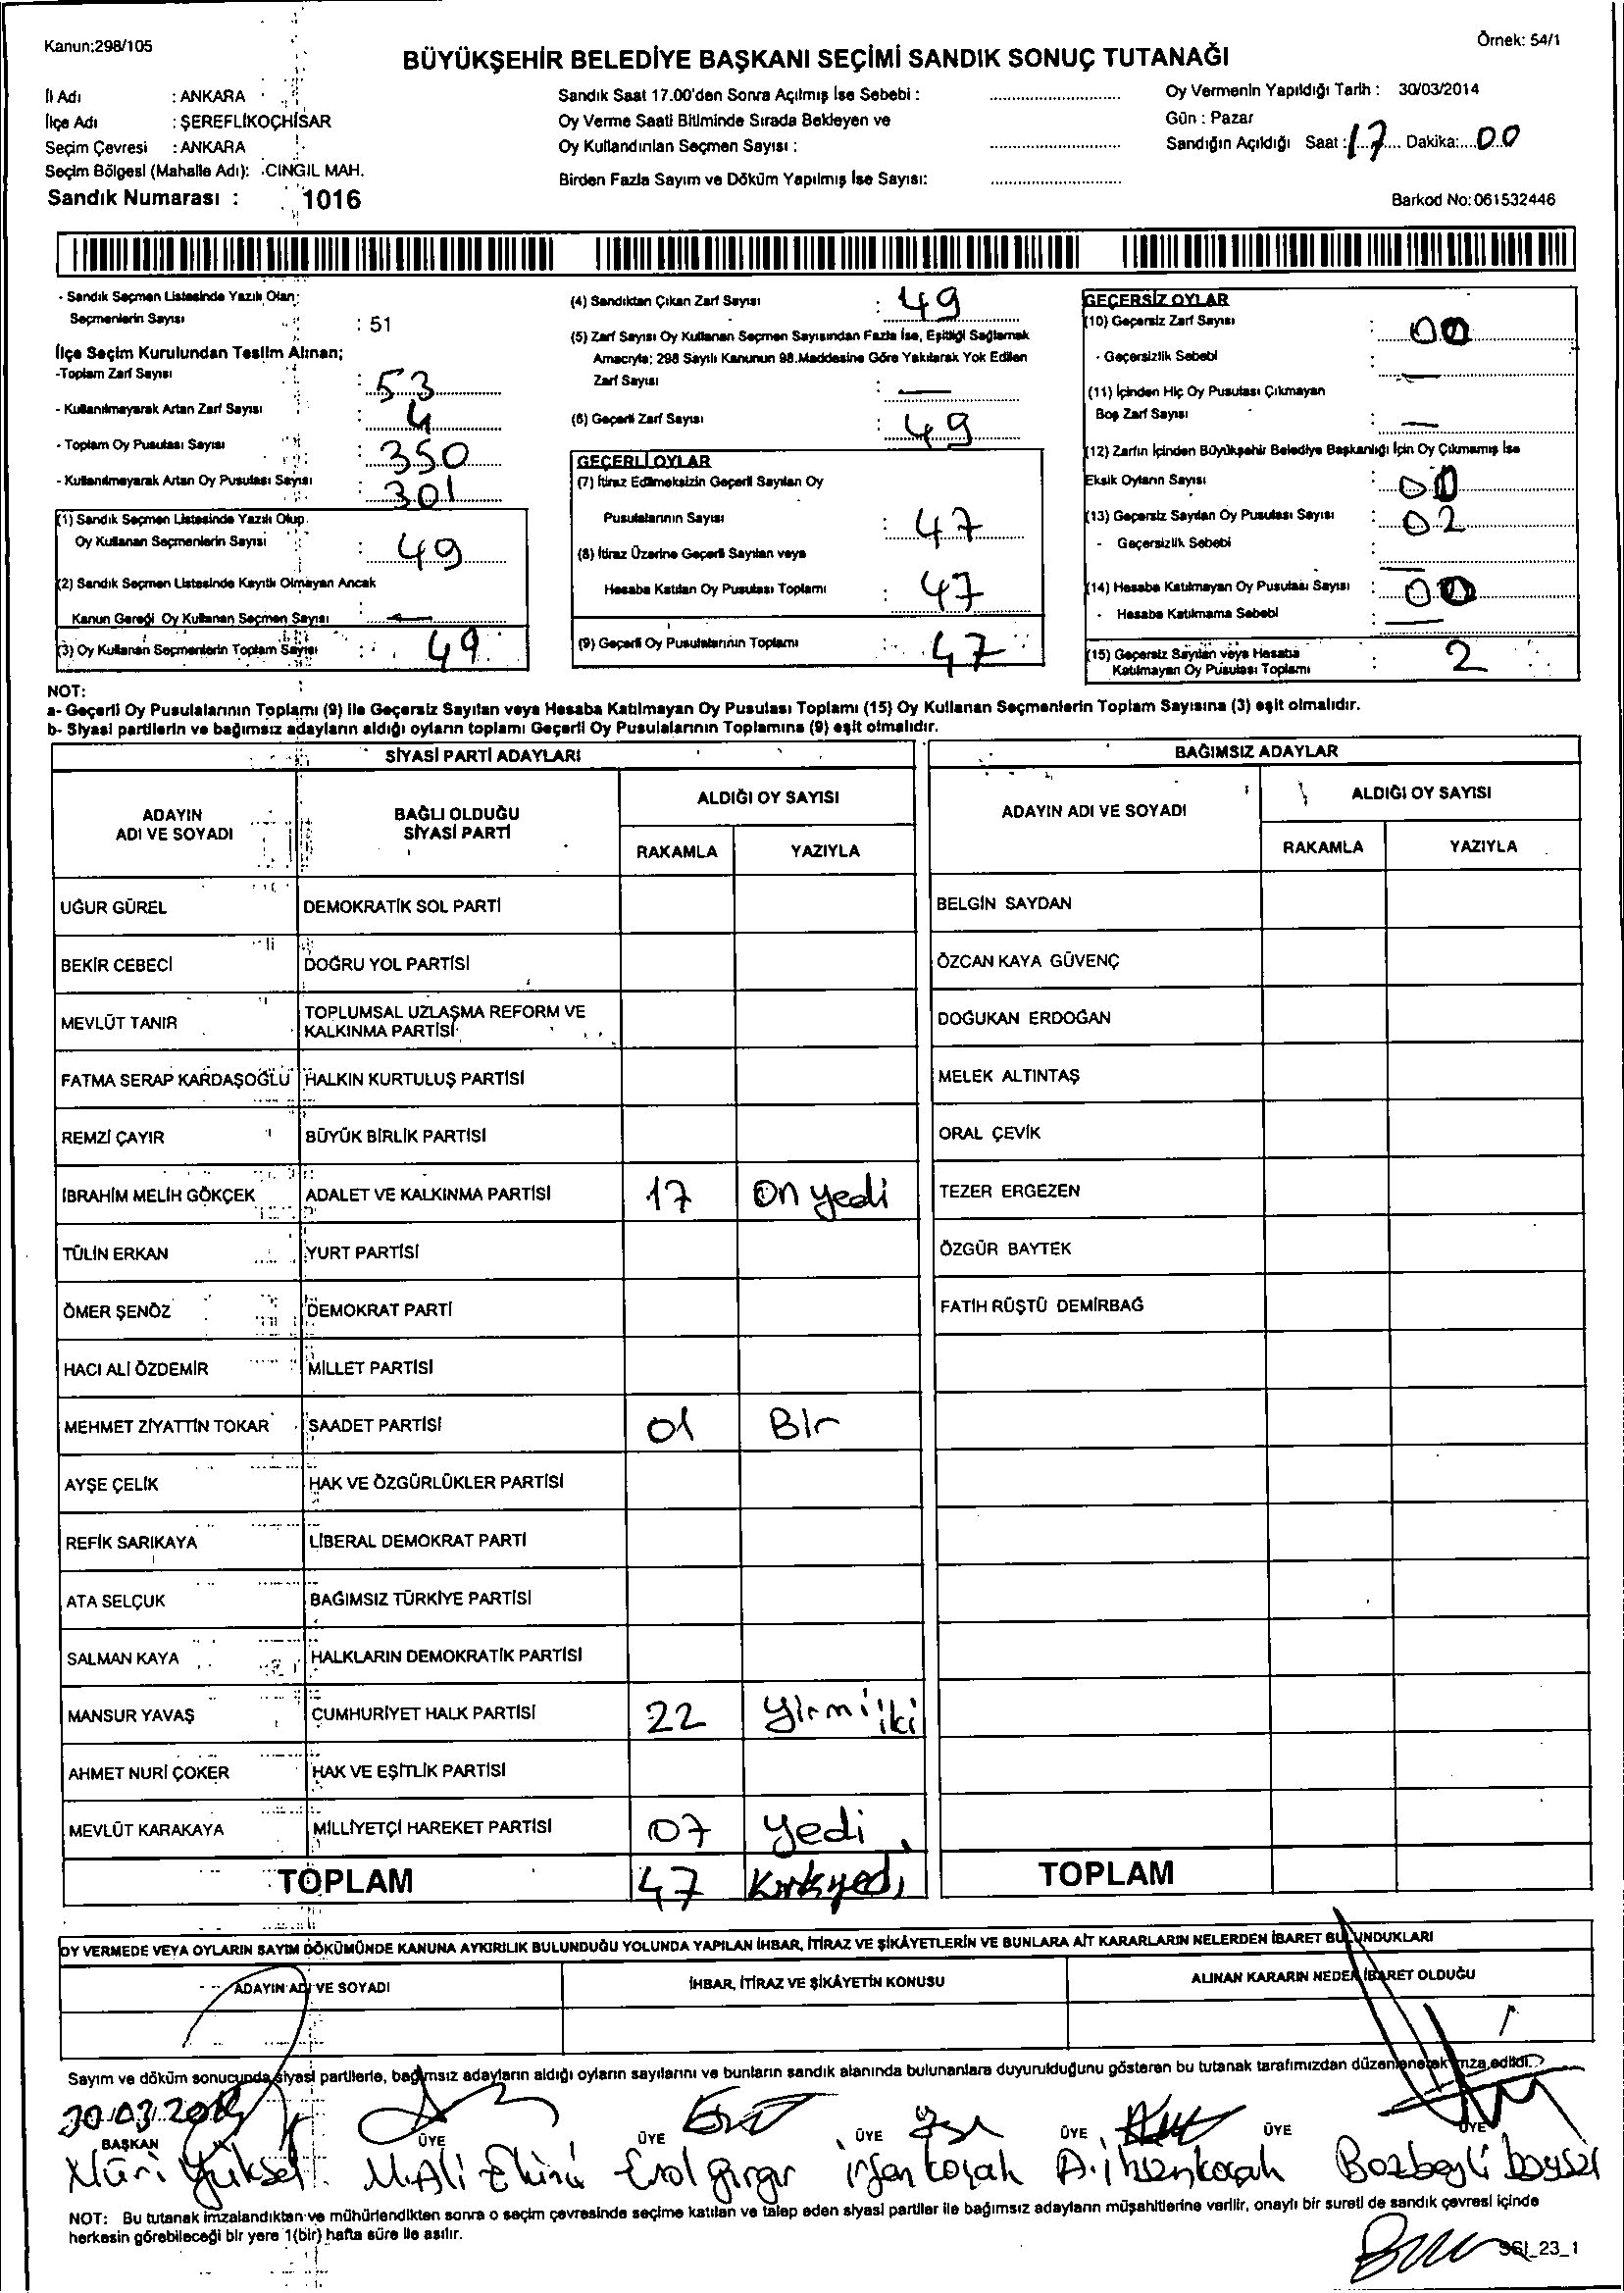 Kanun:298/105
Örnek: 54/1
BÜYÜKŞEHİR BELEDİYE BAŞKANI SEÇİMİ SANDIK SONUÇ TUTANAĞI
İl Adı : ANKARA
İlçe Adı : ŞEREFLİKOÇHİSAR
Seçim Çevresi : ANKARA
Seçim Bölgesi (Mahalle Adı): CINGIL MAH.
Sandık Numarası : 1016
Sandık Saat 17.00'den Sonra Açılmış İse Sebebi :
Oy Verme Saati Bitiminde Sırada Bekleyen ve
Oy Kullandırılan Seçmen Sayısı :
Birden Fazla Sayım ve Döküm Yapılmış İse Sayısı:
Oy Vermenin Yapıldığı Tarih : 30/03/2014
Gün : Pazar
Sandığın Açıldığı Saat : 17 Dakika: 00
Barkod No: 061532446
- Sandık Seçmen Listesinde Yazılı Olan
Seçmenlerin Sayısı : 51
İlçe Seçim Kurulundan Teslim Alınan;
-Toplam Zarf Sayısı : 53
- Kullanılmayarak Artan Zarf Sayısı : 4
- Toplam Oy Pusulası Sayısı : 350
- Kullanılmayarak Artan Oy Pusulası Sayısı : 301
(1) Sandık Seçmen Listesinde Yazılı Olup
Oy Kullanan Seçmenlerin Sayısı : 49
(2) Sandık Seçmen Listesinde Kayıtlı Olmayan Ancak
Kanun Gereği Oy Kullanan Seçmen Sayısı : —
(3) Oy Kullanan Seçmenlerin Toplam Sayısı : 49
(4) Sandıktan Çıkan Zarf Sayısı : 49
(5) Zarf Sayısı Oy Kullanan Seçmen Sayısından Fazla İse, Eşitliği Sağlamak
Amacıyla; 298 Sayılı Kanunun 98.Maddesine Göre Yakılarak Yok Edilen
Zarf Sayısı : —
(6) Geçerli Zarf Sayısı : 49
GEÇERLİ OYLAR
(7) İtiraz Edilmeksizin Geçerli Sayılan Oy
Pusulalarının Sayısı : 47
(8) İtiraz Üzerine Geçerli Sayılan veya
Hesaba Katılan Oy Pusulası Toplamı : 47
(9) Geçerli Oy Pusulalarının Toplamı : 47
GEÇERSİZ OYLAR
(10) Geçersiz Zarf Sayısı : 00
- Geçersizlik Sebebi : —
(11) İçinden Hiç Oy Pusulası Çıkmayan
Boş Zarf Sayısı : —
(12) Zarfın İçinden Büyükşehir Belediye Başkanlığı İçin Oy Çıkmamış İse
Eksik Oyların Sayısı : 00
(13) Geçersiz Sayılan Oy Pusulası Sayısı : 02
- Geçersizlik Sebebi : —
(14) Hesaba Katılmayan Oy Pusulası Sayısı : 00
- Hesaba Katılmama Sebebi : —
(15) Geçersiz Sayılan veya Hesaba
Katılmayan Oy Pusulası Toplamı : 2
NOT:
a- Geçerli Oy Pusulalarının Toplamı (9) ile Geçersiz Sayılan veya Hesaba Katılmayan Oy Pusulası Toplamı (15) Oy Kullanan Seçmenlerin Toplam Sayısına (3) eşit olmalıdır.
b- Siyasi partilerin ve bağımsız adayların aldığı oyların toplamı Geçerli Oy Pusulalarının Toplamına (9) eşit olmalıdır.
SİYASİ PARTİ ADAYLARI
ADAYIN ADI VE SOYADI BAĞLI OLDUĞU SİYASİ PARTİ ALDIĞI OY SAYISI
RAKAMLA YAZIYLA
UĞUR GÜREL DEMOKRATİK SOL PARTİ
BEKİR CEBECİ DOĞRU YOL PARTİSİ
MEVLÜT TANIR TOPLUMSAL UZLAŞMA REFORM VE
KALKINMA PARTİSİ
FATMA SERAP KARDAŞOĞLU HALKIN KURTULUŞ PARTİSİ
REMZİ ÇAYIR BÜYÜK BİRLİK PARTİSİ
İBRAHİM MELİH GÖKÇEK ADALET VE KALKINMA PARTİSİ 17 On yedi
TÜLİN ERKAN YURT PARTİSİ
ÖMER ŞENÖZ DEMOKRAT PARTİ
HACI ALİ ÖZDEMİR MİLLET PARTİSİ
MEHMET ZİYATTİN TOKAR SAADET PARTİSİ 01 Bir
AYŞE ÇELİK HAK VE ÖZGÜRLÜKLER PARTİSİ
REFİK SARIKAYA LİBERAL DEMOKRAT PARTİ
ATA SELÇUK BAĞIMSIZ TÜRKİYE PARTİSİ
SALMAN KAYA HALKLARIN DEMOKRATİK PARTİSİ
MANSUR YAVAŞ CUMHURİYET HALK PARTİSİ 22 Yirmi iki
AHMET NURİ ÇOKER HAK VE EŞİTLİK PARTİSİ
MEVLÜT KARAKAYA MİLLİYETÇİ HAREKET PARTİSİ 07 Yedi
TOPLAM 47 Kırkyedi
BAĞIMSIZ ADAYLAR
ADAYIN ADI VE SOYADI ALDIĞI OY SAYISI
RAKAMLA YAZIYLA
BELGİN SAYDAN
ÖZCAN KAYA GÜVENÇ
DOĞUKAN ERDOĞAN
MELEK ALTINTAŞ
ORAL ÇEVİK
TEZER ERGEZEN
ÖZGÜR BAYTEK
FATİH RÜŞTÜ DEMİRBAĞ
TOPLAM
OY VERMEDE VEYA OYLARIN SAYIM DÖKÜMÜNDE KANUNA AYKIRILIK BULUNDUĞU YOLUNDA YAPILAN İHBAR, İTİRAZ VE ŞİKÂYETLERİN VE BUNLARA AİT KARARLARIN NELERDEN İBARET BULUNDUKLARI
ADAYIN ADI VE SOYADI İHBAR, İTİRAZ VE ŞİKÂYETİN KONUSU ALINAN KARARIN NEDEN İBARET OLDUĞU
Sayım ve döküm sonucunda siyasi partilerle, bağımsız adayların aldığı oyların sayılarını ve bunların sandık alanında bulunanlara duyurulduğunu gösteren bu tutanak tarafımızdan düzenlenerek imza edildi.
30.03.2014
BAŞKAN ÜYE ÜYE ÜYE ÜYE ÜYE ÜYE
Nuri Yüksel M.Ali Ekinci Erol Gırgır irfan koçak A.ihsan koçak Bozbeyli
NOT: Bu tutanak imzalandıktan ve mühürlendikten sonra o seçim çevresinde seçime katılan ve talep eden siyasi partiler ile bağımsız adayların müşahitlerine verilir, onaylı bir sureti de sandık çevresi içinde
herkesin görebileceği bir yere 1(bir) hafta süre ile asılır.
SSI_23_1